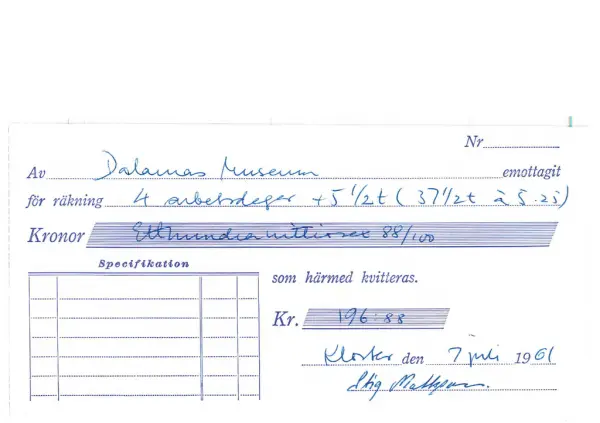 Nr
Av Dalarnas Museum emottagit
för räkning 4 arbetsdagar + 5 1/2 t ( 37 1/2 t à 5.25)
Kronor Etthundranittiosex 88/100
Specifikation
som härmed kvitteras.
Kr. 196:88
Kloster den 7 juli 1961
Stig